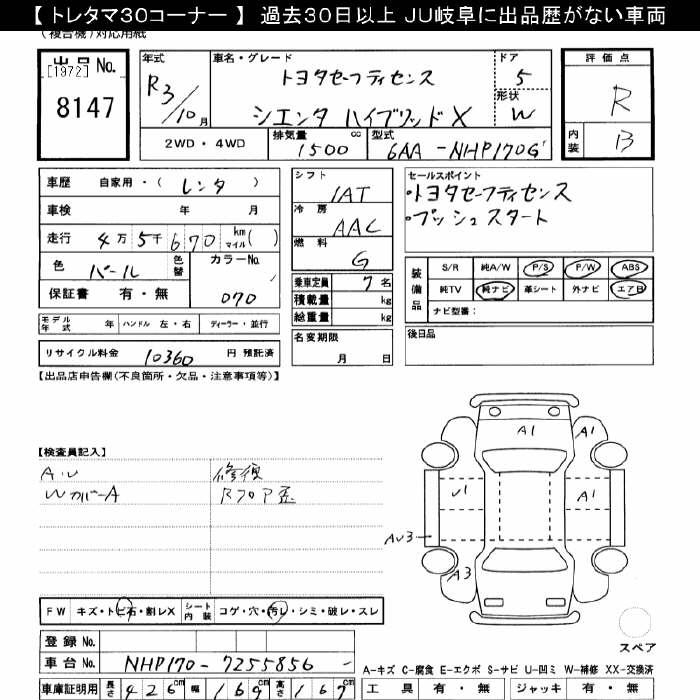 【 トレタマ30コーナー 】 過去30日以上 JU岐阜に出品歴がない車両
(複合機)対応用紙
出品 No.
[1972]
8147
年式
R3/10月
車名・グレード
トヨタセーフティセンス
シエンタ ハイブリッドX
ドア
5
形状
W
2WD ・ 4WD
排気量 1500 cc
型式 6AA-NHP170G
評価点
R
内装 B
車歴 自家用・( レンタ )
車検 年 月
走行 4万5千670 km マイル( )
色 パール 色替
カラーNo. 070
保証書 有・無
シフト IAT
冷房 AAC
燃料 G
乗車定員 7名
積載量 kg
総重量 kg
セールスポイント
・トヨタセーフティセンス
・プッシュスタート
装備品
S/R 純A/W P/S P/W ABS
純TV 純ナビ 革シート 外ナビ エアB
ナビ型番:
モデル年式 年 ハンドル 左・右 ディーラー・並行
名変期限 月 日
後日品
リサイクル料金 10360 円 預託済
【出品店申告欄(不良箇所・欠品・注意事項等)】
【検査員記入】
A・U 修復
WカバーA RフロアF歪
A1
A1
U1
A1
AU3
A3
FW キズ・トビ石・割レX シート内装 コゲ・穴・汚レ・シミ・破レ・スレ
スペア
登録 No.
車台 No. NHP170-7255856
A-キズ C-腐食 E-エクボ S-サビ U-凹ミ W-補修 XX-交換済
車庫証明用 長さ 426cm 幅 169cm 高さ 167cm
工具 有・無 ジャッキ 有・無